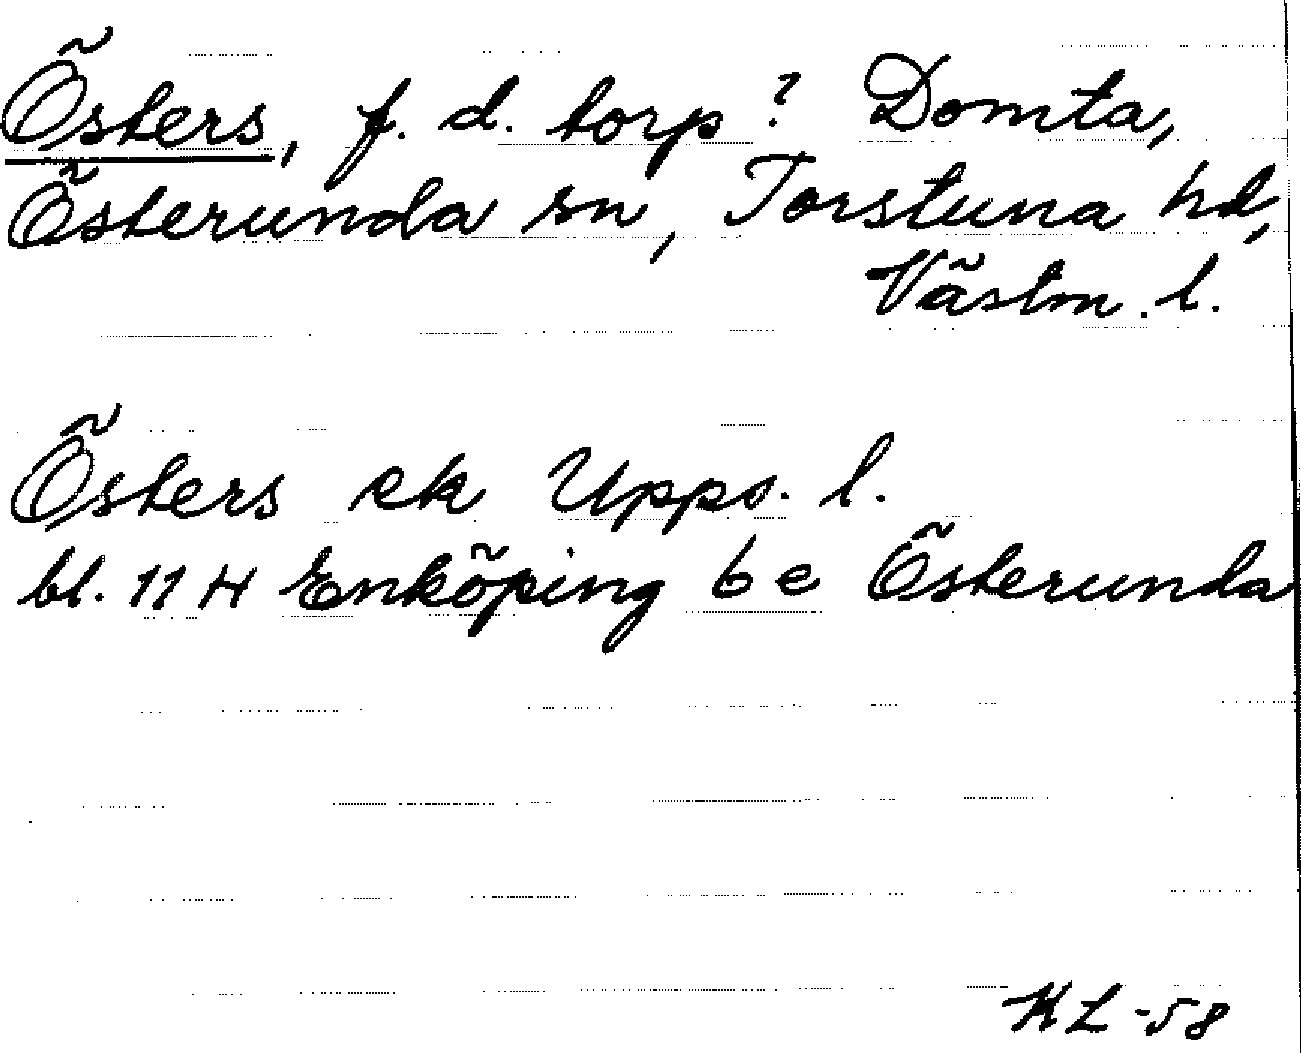 Östers, f. d. torp? Domta,
Österunda sn, Torstuna hd,
Västm. l.
Östers ek Upps. l.
bl. 11 H Enköping 6 e Österunda
KL-58